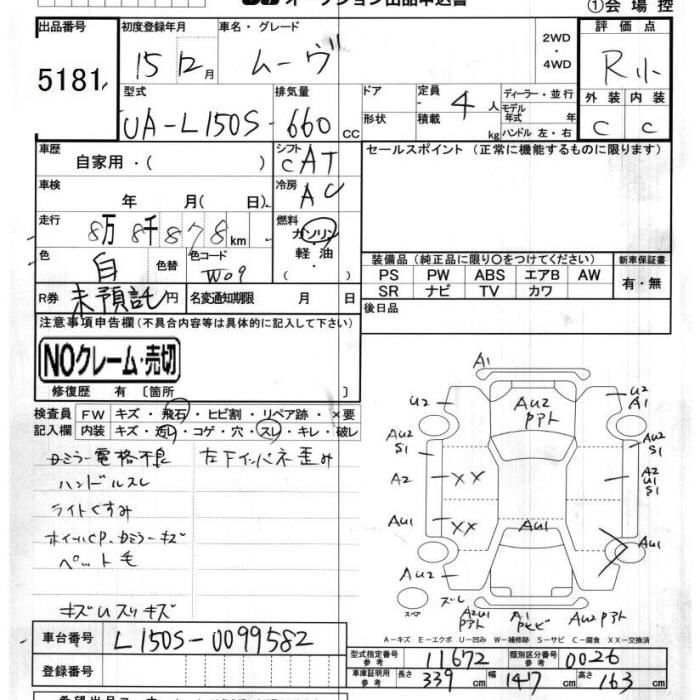 オークション出品申込書
①会場控
出品番号 初度登録年月 車名・グレード 2WD・4WD 評価点
5181 15 12月 ムーヴ R小
型式 排気量 ドア 定員 4 人 ディーラー・並行 外装 内装
UA-L150S- 660 cc 形状 積載 kg モデル年式 年 ハンドル 左・右 C C
車歴 シフト セールスポイント (正常に機能するものに限ります)
自家用・( ) CAT
車検 年 月(日) 冷房 AC
走行 8万 8千 8 7 8 km 燃料 ガソリン
色 白 色替 色コード W09 軽油・( )
装備品 (純正品に限り〇をつけてください) 新車保証書
PS PW ABS エアB AW 有・無
SR ナビ TV カワ
R券 未預託 円 名変通知期限 月 日 後日品
注意事項申告欄 (不具合内容等は具体的に記入して下さい)
NOクレーム・売切
修復歴 有 [箇所 ]
検査員 FW キズ・飛石・ヒビ割・リペア跡・×要
記入欄 内装 キズ・汚レ・コゲ・穴・スレ・キレ・破レ
ミラー電格不良 左下インパネ歪み
ハンドルスレ
ライトくすみ
ホイールCP、ミラーキズ
ペット毛
キズUスリキズ
A1
U2 AU2 U2
Pアト A1
AU2 AU2
S1 S1
A2 XX A2
U1
S1
AU1 XX AU1 AU1
AU2
スペア ズレ A2U1 A1 AU2 Pアト
Pアト Pヒビ
A-キズ E-エクボ U-凹み W-補修跡 S-サビ C-腐食 XX-交換済
車台番号 L150S-0099582
登録番号
型式指定番号 参考 11672 類別区分番号 参考 0026
車庫証明用 参考 長さ 339 cm 幅 147 cm 高さ 163 cm